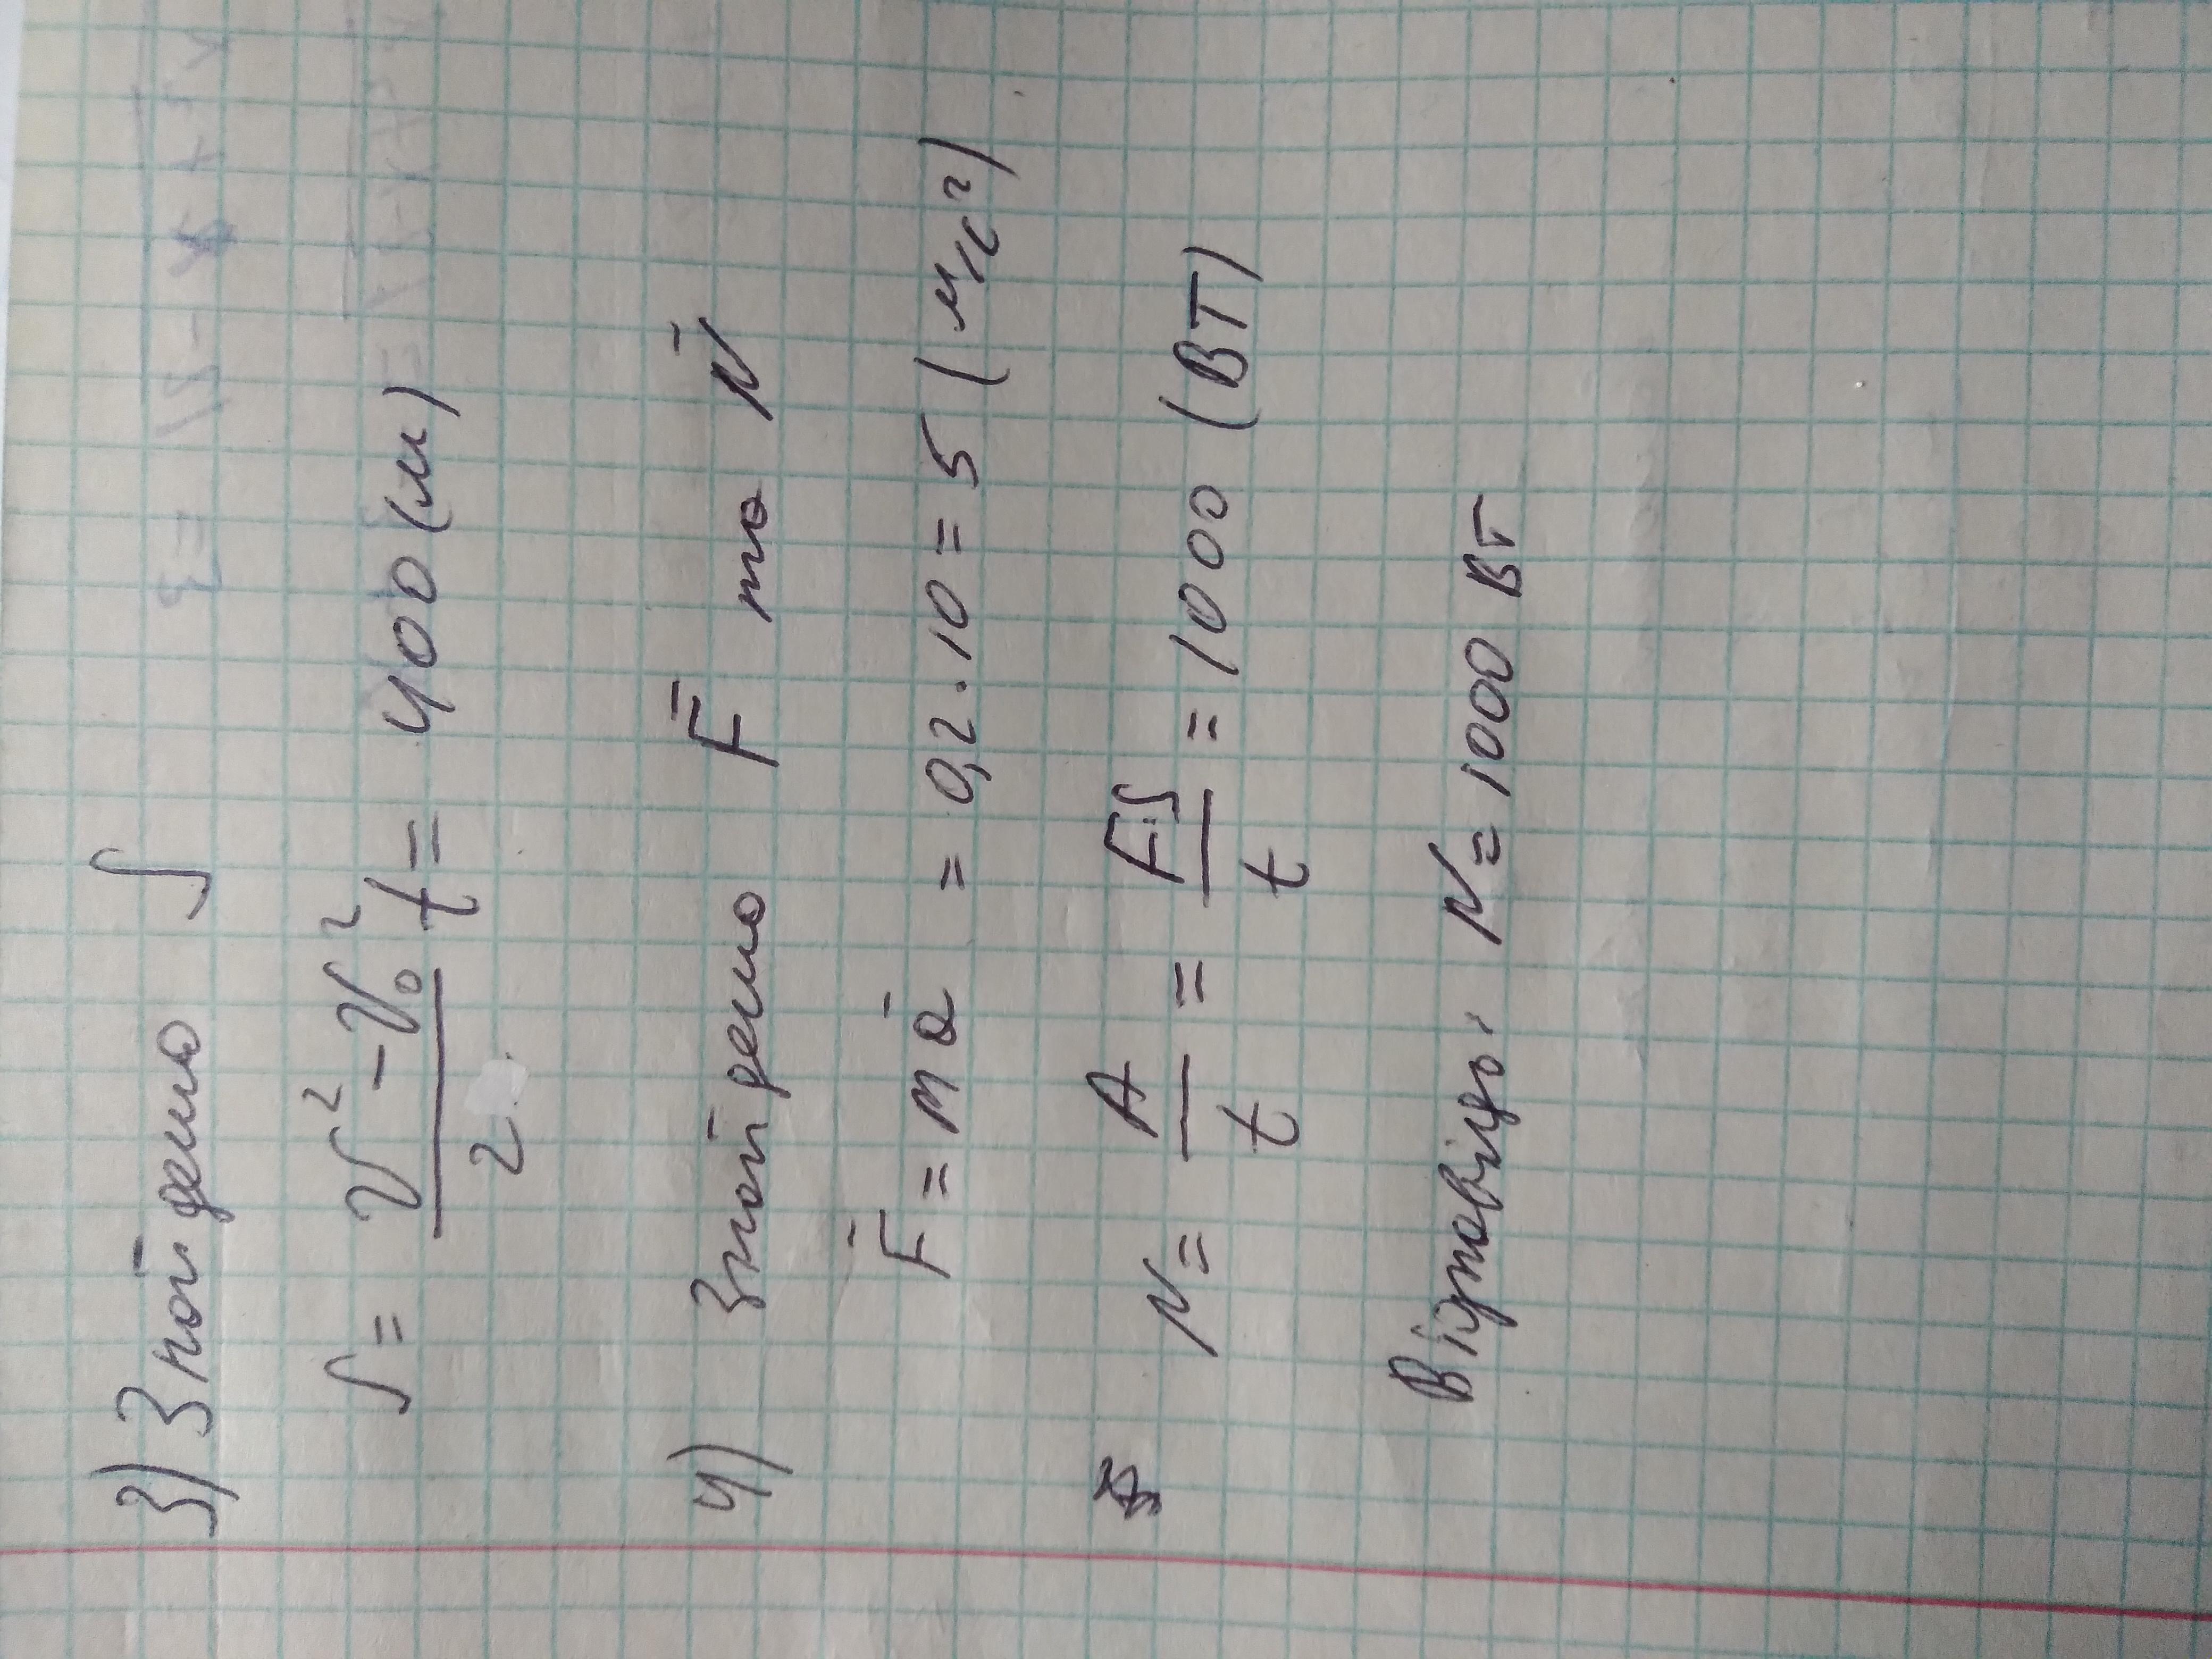 3) Знайдемо S
S = (v² - v₀²)/2 t = 400 (м)
4) Знайдемо F̄ та N̄
F̄ = mā = 0,2 · 10 = 5 (м/с²)
N = A/t = F·S/t = 1000 (ВТ)
Відповідь, N = 1000 Вт